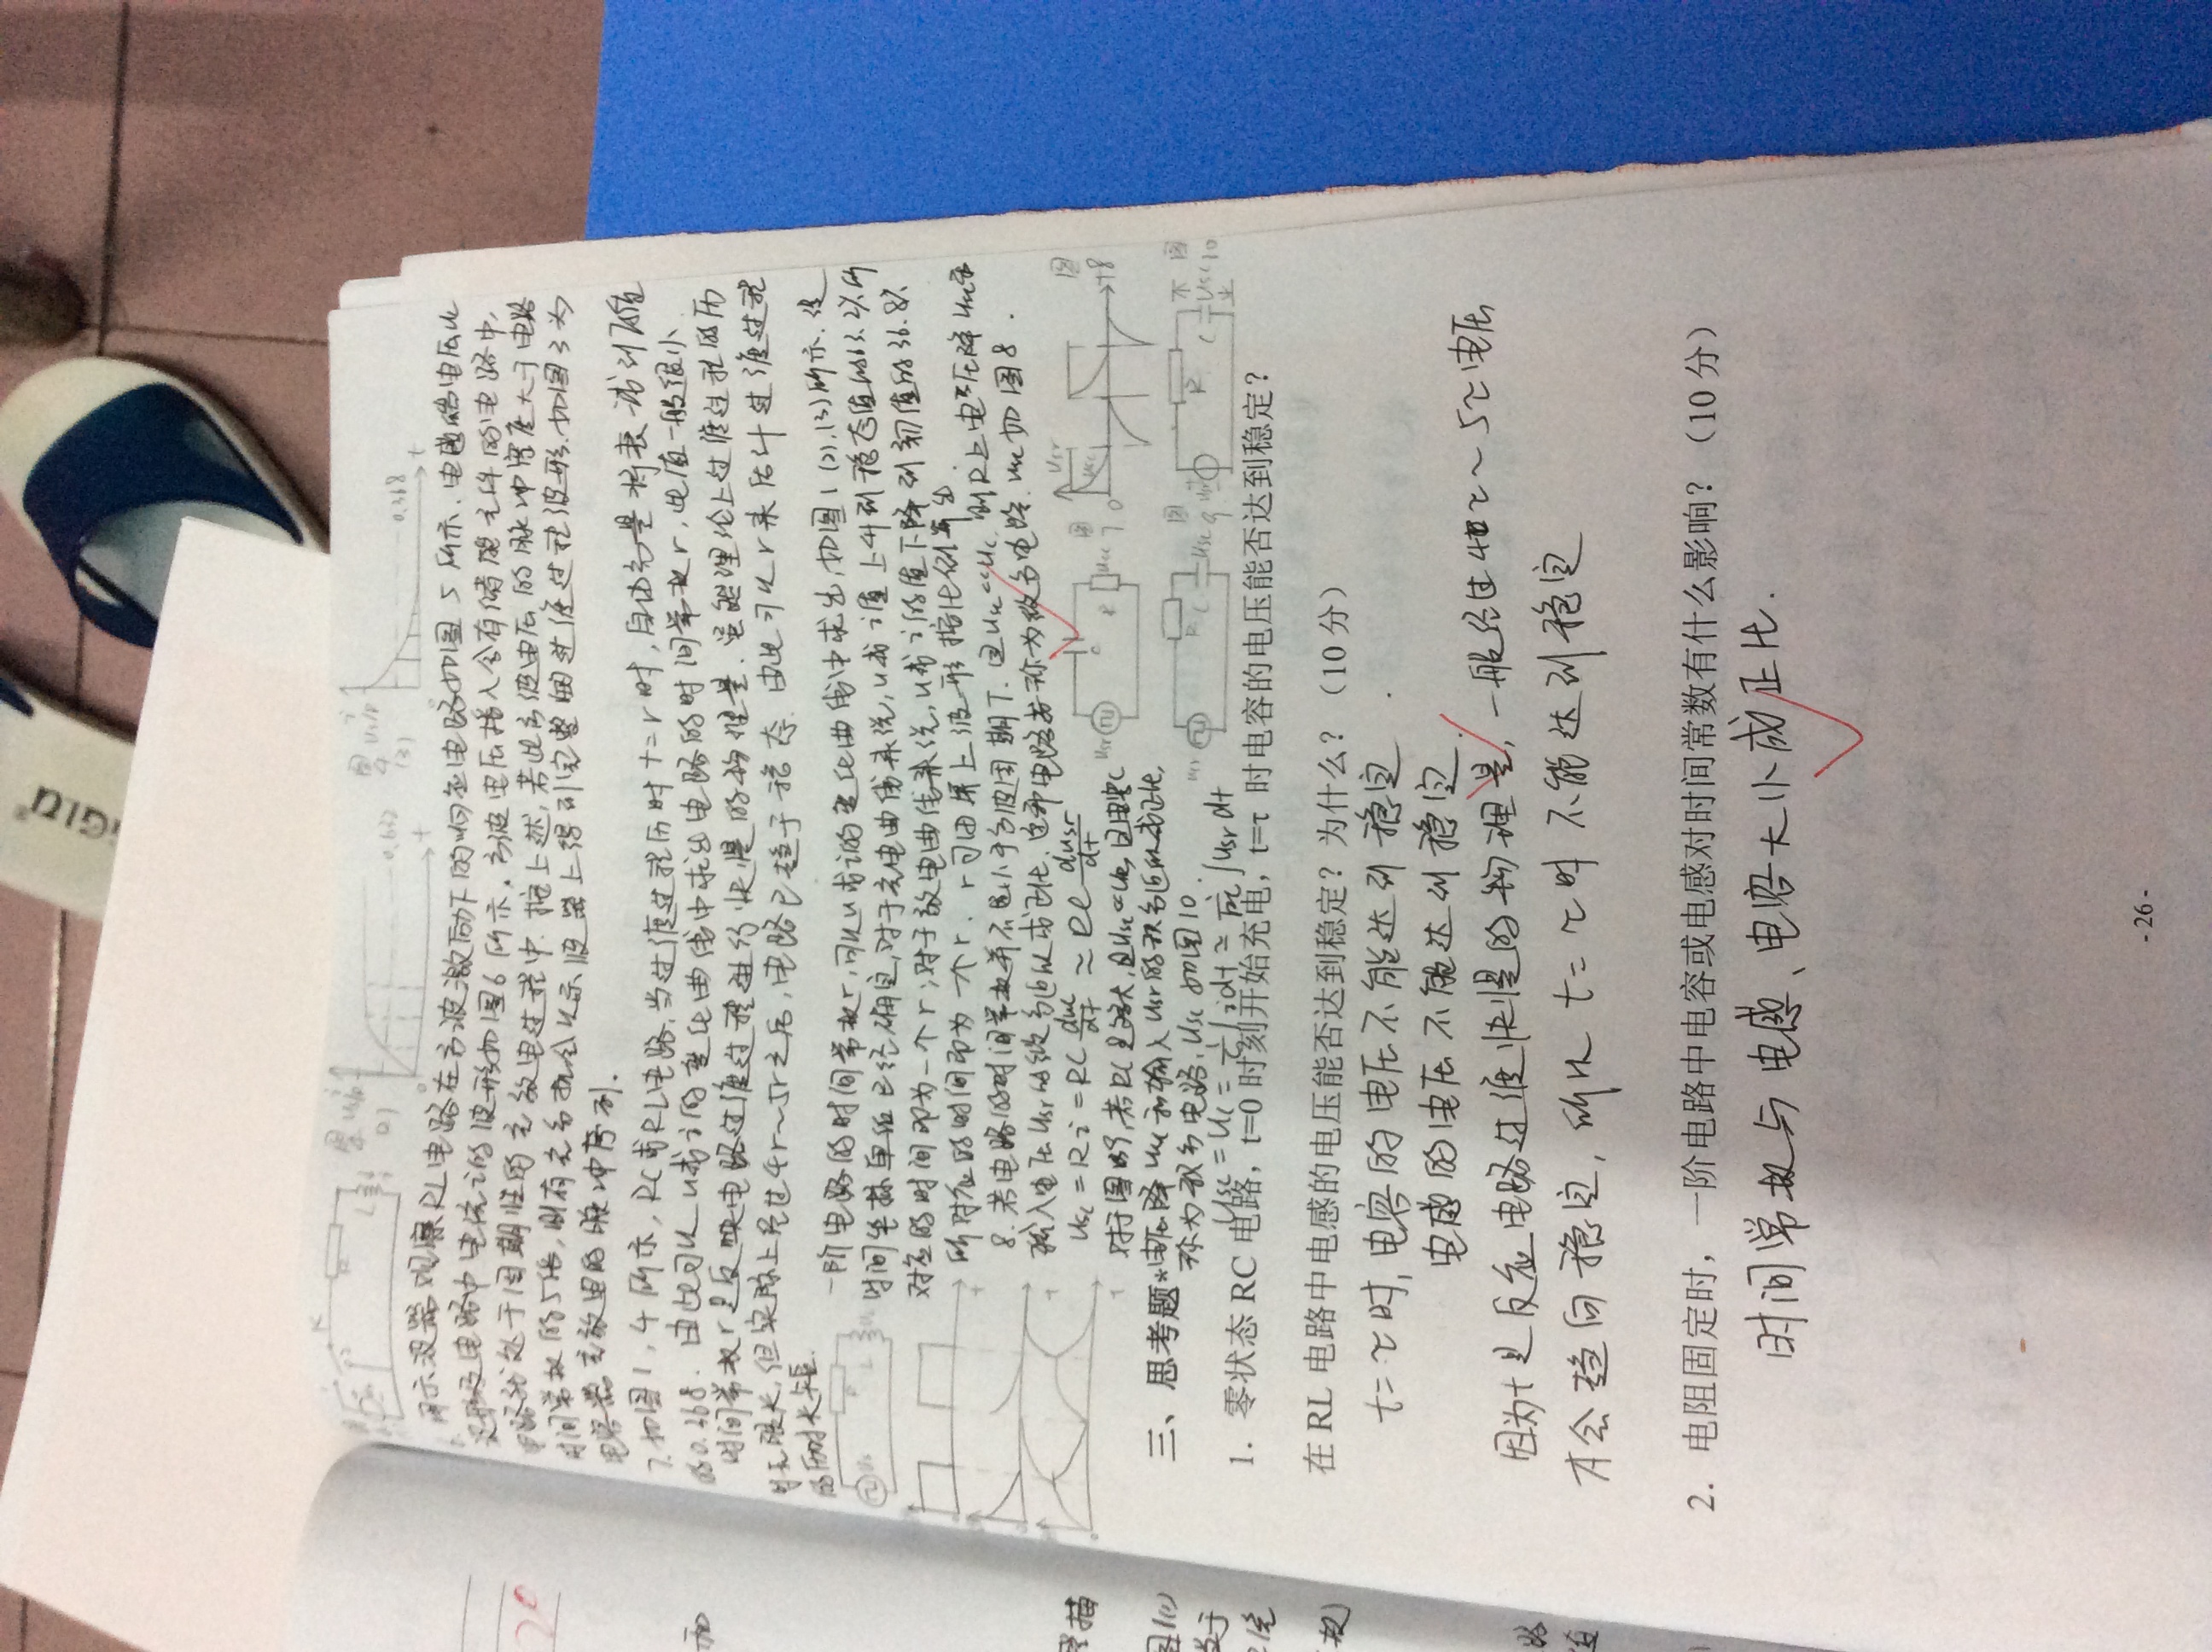 GIU
R
R
L
图4
(2)
i
Us/R
0.632
t
图4
(3)
i
Us/R
0.368
t
用示波器观察RL电路在方波激励下的响应电路如图5所示.电感端电压
波形及电路中电流i的波形如图6所示.方波电压接入含有储能元件的电路中,
电路就处于周期性的充放电过程中.按上述,若此方波电压的脉冲宽度大于电路
时间常数的5倍,则有充分机会从示波器上得到完整的过渡过程波形.如图3为
电容器充放电的脉冲序列.
7.如图1,4所示,RC或RL电路,当过渡过程历时t=r时,自由分量将衰减到原值
的0.368.由此可从u或i的变化曲线中求出电路的时间常数r,此值一般很小.
时间常数r是反映电路过渡过程进行快慢的物理量.虽然理论上过渡过程的历
时无限长,但实际上经过4r~5r之后,电路已趋于稳态.由此可以r来估计过渡过程
的历时长短.
一阶电路的时间常数r,可从u或i的变化曲线中求出,如图1(2),(3)所示.设
时间坐标单位已经确定,对于充电曲线来说,u或i值上升到稳态值的63.2%所
对应的时间即为一个r;对于放电曲线来说,u或i的值下降到初值的36.8%
所对应的时间即为一个r.r可由屏上波形按比例算出.
8.若电路的时间常数并不远小于方波周期T.且Usc<<Uc.则R上电压降Usc和
输入电压Usr的微分近似成正比.这种电路称为微分电路.Usc如图8.
Usc=Ri=RC duc/dt ≈ RC dusr/dt
对于图9,若RC足够大,且Usc<<UR,且电容C
电压降Usc和输入Usr的积分近似成正比,
称为积分电路,Usc如图10.
Usc=Uc=1/C∫idt≈1/RC∫Usr dt
Usr
C
R
Usc
图7
Usr
Usc
0
t
图8
Usr
R
C
Usc
图9
Usr
R
C
Usc
图10
三、思考题*
1. 零状态 RC 电路，t=0 时刻开始充电，t=τ 时电容的电压能否达到稳定？
在 RL 电路中电感的电压能否达到稳定？为什么？（10 分）
t=τ时,电容的电压不能达到稳定.
电感的电压不能达到稳定.
因为t是反应电路过渡快慢的物理量,一般经过4τ~5τ电压
才会趋向稳定,所以t=τ时不能达到稳定
2. 电阻固定时，一阶电路中电容或电感对时间常数有什么影响？（10 分）
时间常数与电感、电容大小成正比.
- 26 -
20
和
描
图1(1)
于